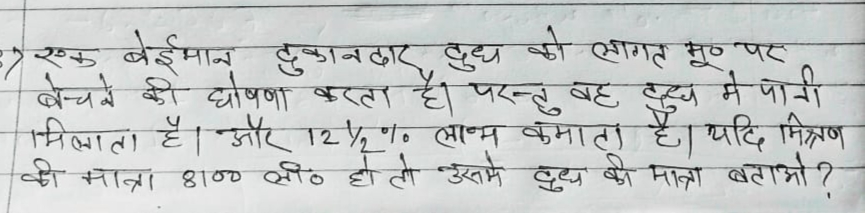 एक बेईमान दुकानदार दुध को लागत मू० पर
बेचने की घोषणा करता है। परन्तु वह दुध मे पानी
मिलाता है। और 12 1/2 % लाभ कमाता है। यदि मिश्रण
की मात्रा 8100 ली० हो तो उसमे दुध की मात्रा बताओ?